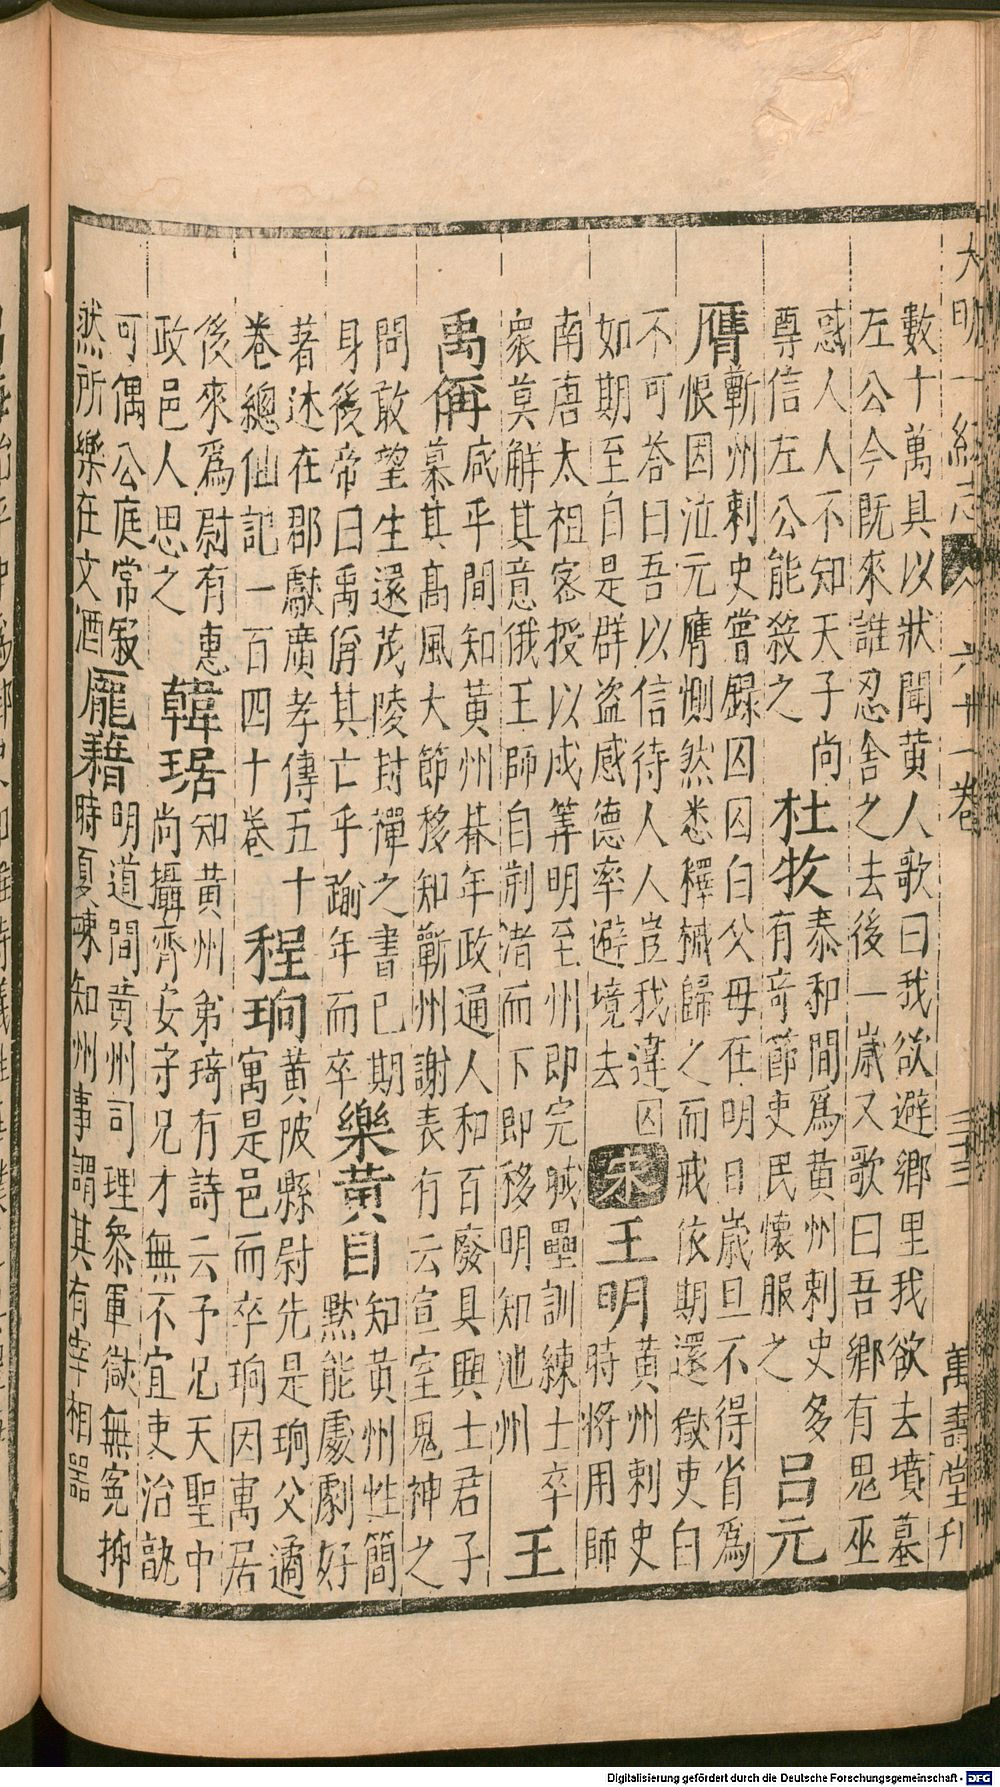 大明一統志 六十一卷 三十三 萬壽堂刋
數十萬具以狀聞黃人歌曰我欲避鄉里我欲去墳墓
左公今既來誰忍舍之去後一歲又歌曰吾鄉有鬼巫
惑人人不知天子尚
尊信左公能殺之
杜牧
泰和間爲黃州刺史多
有奇節吏民懷服之
呂元
膺
蘄州刺史嘗錄囚囚白父母在明日歲旦不得省爲
恨因泣元膺惻然悉釋械歸之而戒依期還獄吏白
不可答曰吾以信待人人豈我違囚
如期至自是群盜感德率避境去
宋
王明
黃州刺史
時將用師
南唐太祖密授以成筭明至州即完城壘訓練士卒
衆莫解其意俄王師自荊渚而下即移明知池州
王
禹偁
咸平間知黃州朞年政通人和百廢具興士君子
慕其高風大節移知蘄州謝表有云宣室鬼神之
問敢望生還茂陵封禪之書已期
身後帝曰禹偁其亡乎踰年而卒
樂黃目
知黃州性簡
默能處劇好
著述在郡獻廣孝傳五十
卷總仙記一百四十卷
程珦
黃陂縣尉先是珦父遹
寓是邑而卒珦因寓居
後來爲尉有惠
政邑人思之
韓琚
知黃州弟琦有詩云予兄天聖中
尚攝齊安守兄才無不宜吏治詵
可偶公庭常寂
然所樂在文酒
龐籍
明道間黃州司理參軍獄無寃抑
時夏竦知州事謂其有宰相器
Digitalisierung gefördert durch die Deutsche Forschungsgemeinschaft - DFG